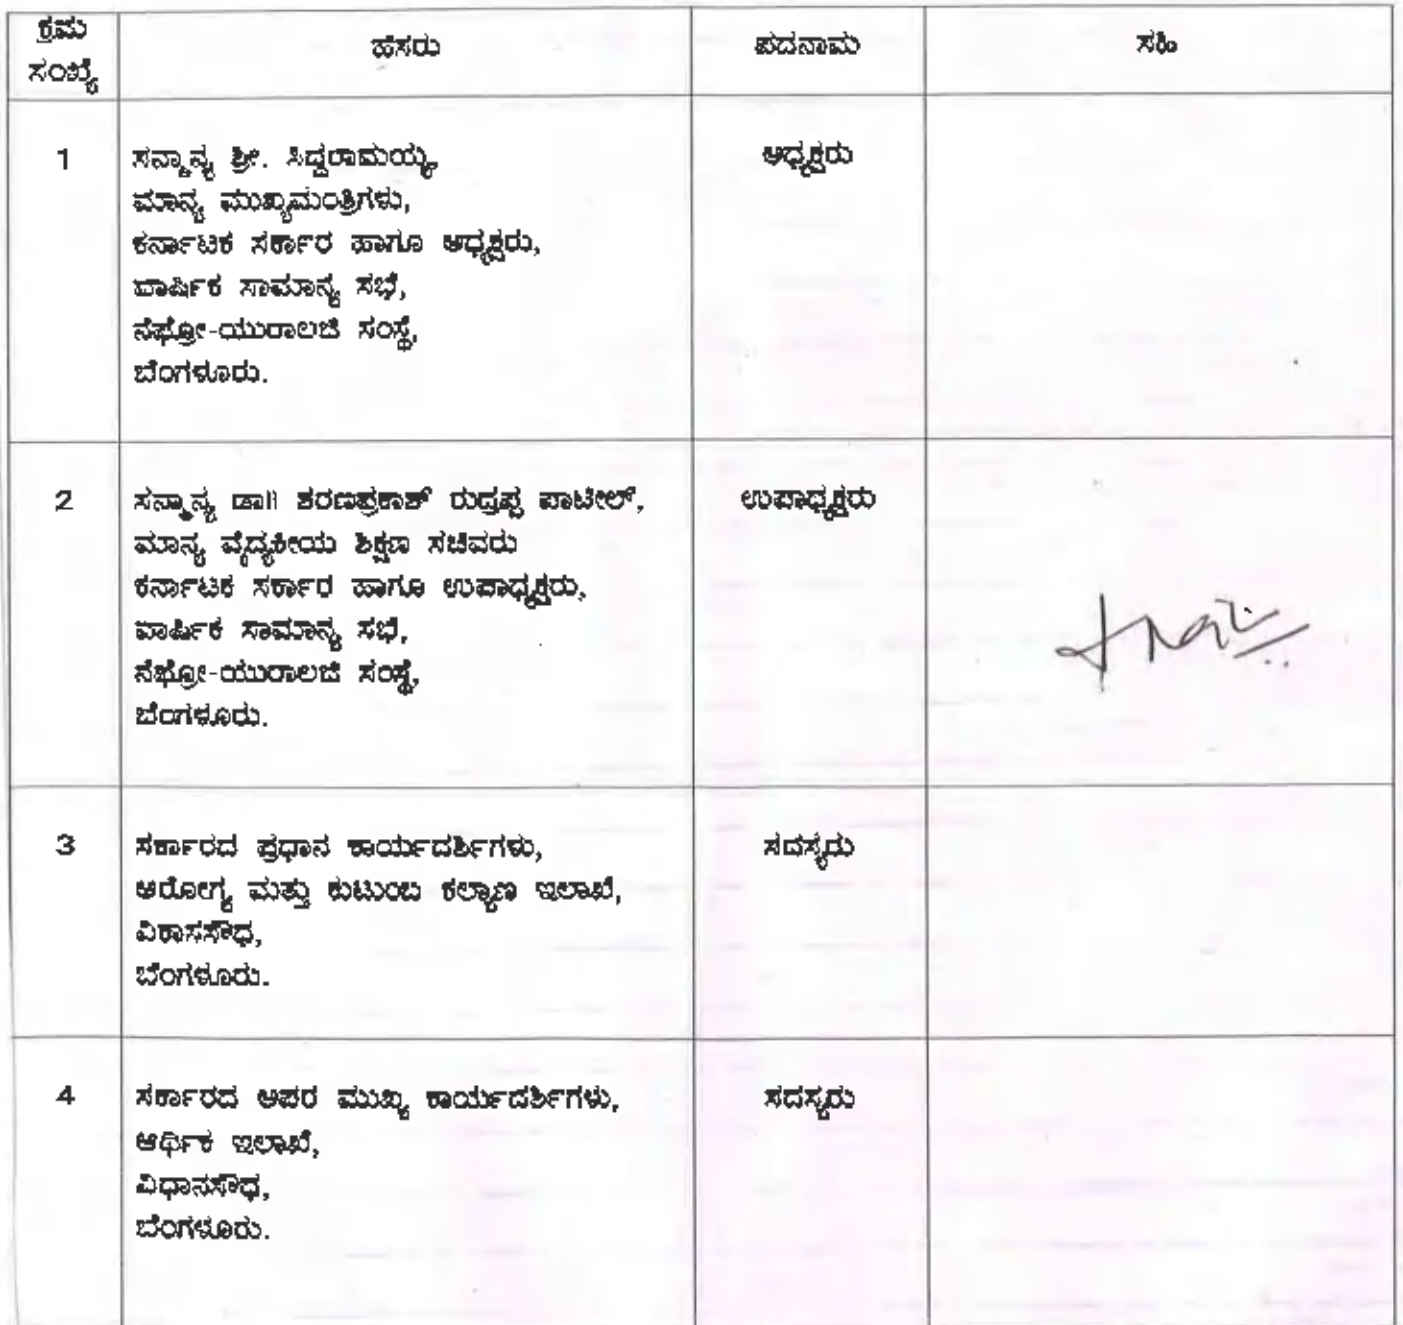 ಕ್ರಮ ಸಂಖ್ಯೆ ಹೆಸರು ಪದನಾಮ ಸಹಿ
1 ಸನ್ಮಾನ್ಯ ಶ್ರೀ. ಸಿದ್ದರಾಮಯ್ಯ, ಅಧ್ಯಕ್ಷರು
ಮಾನ್ಯ ಮುಖ್ಯಮಂತ್ರಿಗಳು,
ಕರ್ನಾಟಕ ಸರ್ಕಾರ ಹಾಗೂ ಅಧ್ಯಕ್ಷರು,
ವಾರ್ಷಿಕ ಸಾಮಾನ್ಯ ಸಭೆ,
ನೆಫ್ರೋ-ಯುರಾಲಜಿ ಸಂಸ್ಥೆ,
ಬೆಂಗಳೂರು.
2 ಸನ್ಮಾನ್ಯ ಡಾ|| ಶರಣಪ್ರಕಾಶ್ ರುದ್ರಪ್ಪ ಪಾಟೀಲ್, ಉಪಾಧ್ಯಕ್ಷರು
ಮಾನ್ಯ ವೈದ್ಯಕೀಯ ಶಿಕ್ಷಣ ಸಚಿವರು
ಕರ್ನಾಟಕ ಸರ್ಕಾರ ಹಾಗೂ ಉಪಾಧ್ಯಕ್ಷರು,
ವಾರ್ಷಿಕ ಸಾಮಾನ್ಯ ಸಭೆ,
ನೆಫ್ರೋ-ಯುರಾಲಜಿ ಸಂಸ್ಥೆ,
ಬೆಂಗಳೂರು.
3 ಸರ್ಕಾರದ ಪ್ರಧಾನ ಕಾರ್ಯದರ್ಶಿಗಳು, ಸದಸ್ಯರು
ಆರೋಗ್ಯ ಮತ್ತು ಕುಟುಂಬ ಕಲ್ಯಾಣ ಇಲಾಖೆ,
ವಿಕಾಸಸೌಧ,
ಬೆಂಗಳೂರು.
4 ಸರ್ಕಾರದ ಅಪರ ಮುಖ್ಯ ಕಾರ್ಯದರ್ಶಿಗಳು, ಸದಸ್ಯರು
ಆರ್ಥಿಕ ಇಲಾಖೆ,
ವಿಧಾನಸೌಧ,
ಬೆಂಗಳೂರು.